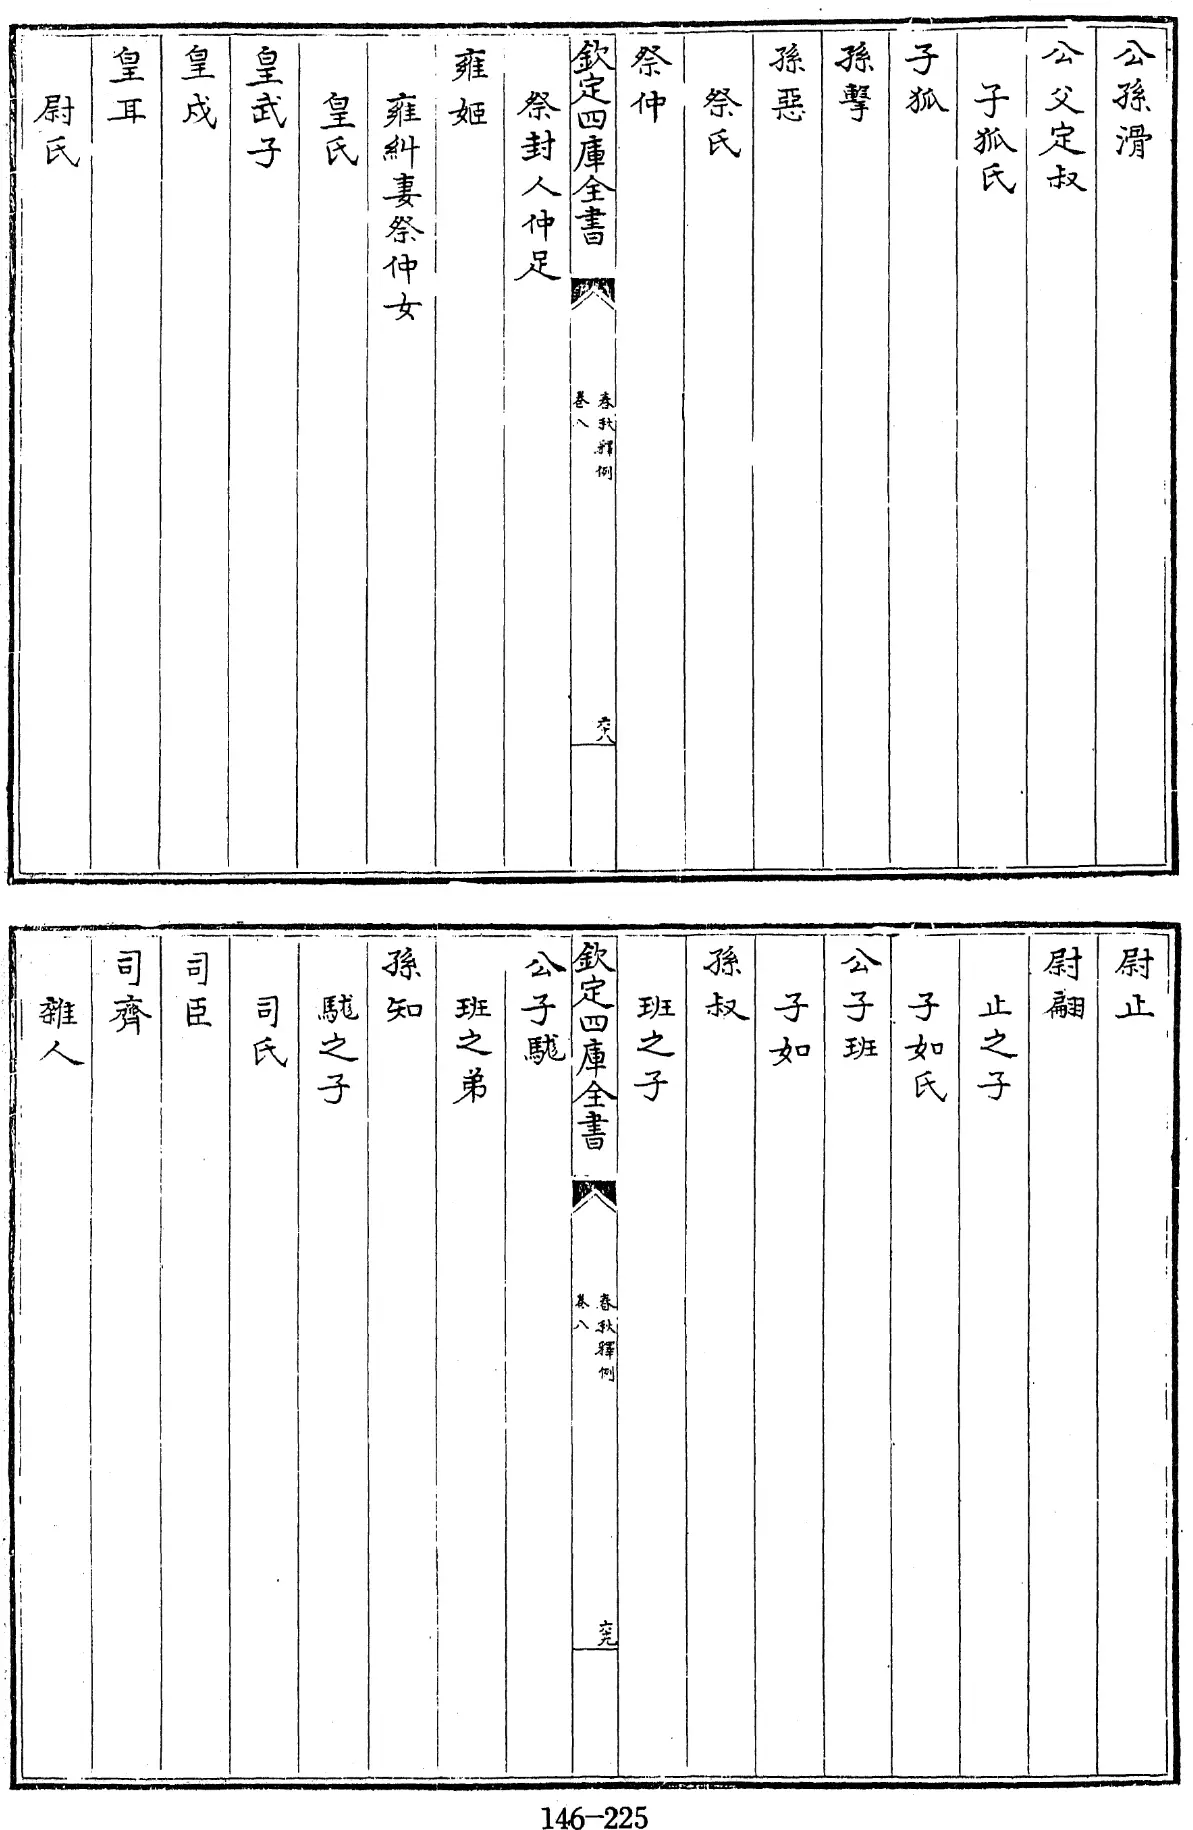 公孫滑
公父定叔
子狐氏
子狐
孫擊
孫惡
祭氏
祭仲
欽定四庫全書
春秋釋例
卷八
六十八
祭封人仲足
雍姬
雍糾妻祭仲女
皇氏
皇武子
皇戌
皇耳
尉氏
尉止
尉翩
止之子
子如氏
公子班
子如
孫叔
班之子
欽定四庫全書
春秋釋例
卷八
六十九
公子駹
班之弟
孫知
駹之子
司氏
司臣
司齊
雜人
146-225